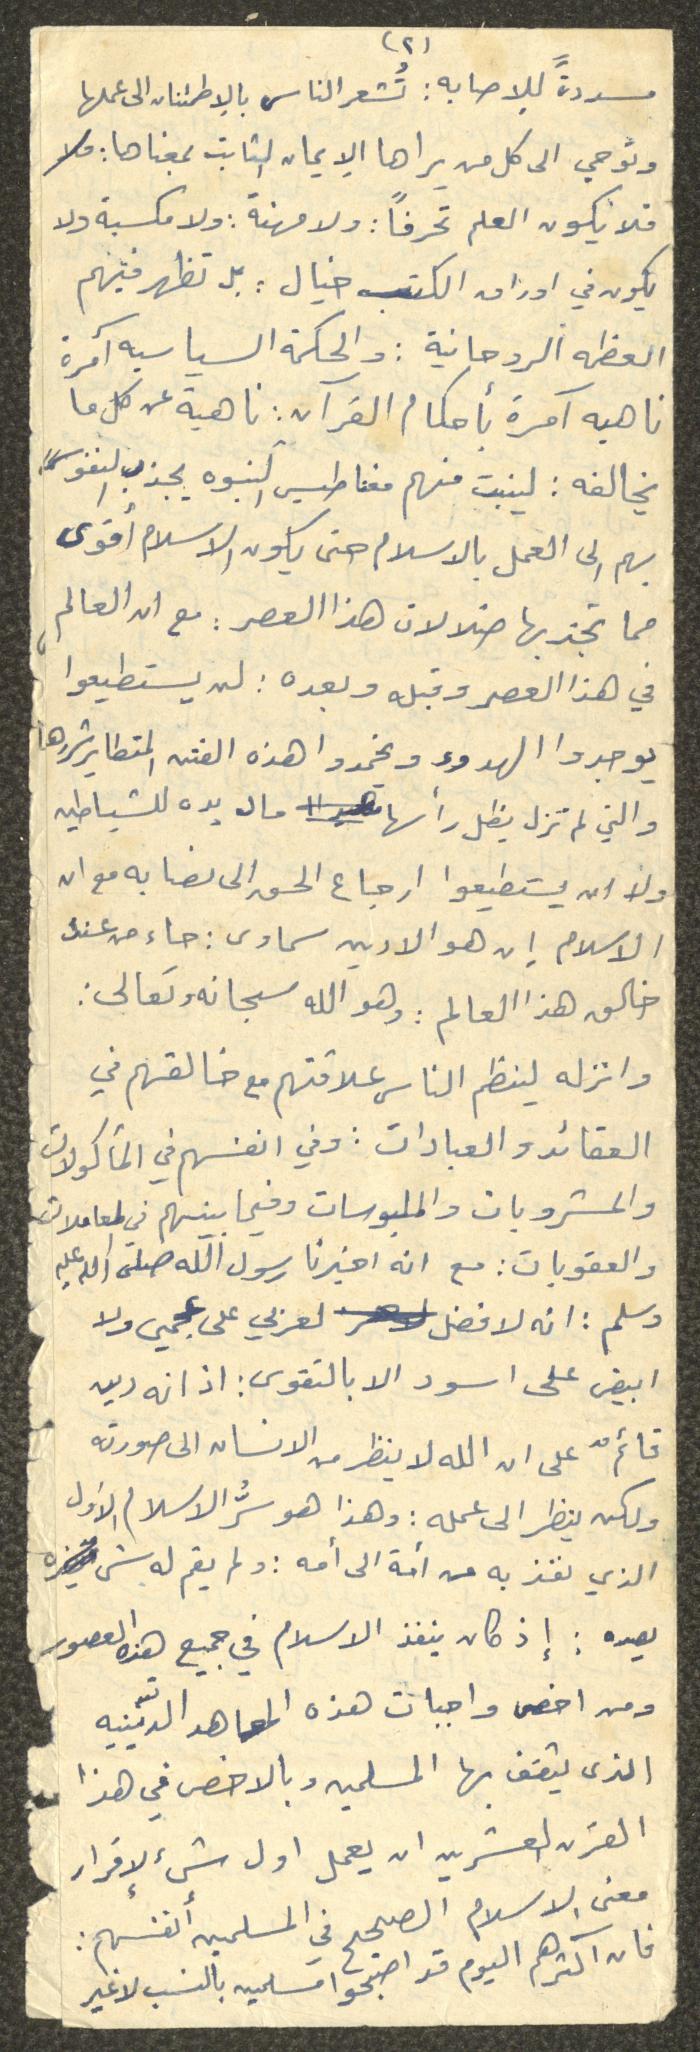 (٢)
مسددةً للاصابه : تُشعر الناس بالاطمئنان الى عملها
وتوحي الى كل من يراها الايمان الثابت بمعناها :
فلا يكون العلم تحرفاً : ولا مهنة : ولا مكسبة ولا
يكون في اوراق الكتب خيال : بل تظهر فيهم
العظمه الروحانية : والحكمة السياسيه آمرة
ناهيه آمرة بأحكام القرآن : ناهية عن كل ما
يخالفه : لينبت منهم مغناطيس النبوه يجذب النفوس
بهم الى العمل بالاسلام حتى يكون الاسلام أقوى
مما تجذبها ضلالات هذا العصر : مع ان العالم
في هذا العصر وقبله وبعده : لن يستطيعوا
يوجدوا الهدوء ويخمدوا هذه الفتن المتطاير شررها
والتي لم تزل يطل رأسها ماد يده للشياطين
ولا ان يستطيعوا ارجاع الحق الى نصابه مع ان
الاسلام ان هو الا دين سماوى : جاء من عند
خالق هذا العالم : وهو الله سبحانه وتعالى :
وانزله لينظم الناس علاقتهم مع خالقهم في
العقائد والعبادات : وفي انفسهم في المأكولات
والمشروبات والملبوسات وفيما بينهم في المعاملات
والعقوبات : مع انه اخبرنا رسول الله صلى الله عليه
وسلم : انه لا فضل لعربي على عجمي ولا
ابيض على اسود الا بالتقوى : اذ انه دين
قائم على ان الله لا ينظر من الانسان الى صورته
ولكن ينظر الى عمله : وهذا هو سرُّ الاسلام الاول
الذي نفذ به من أمة الى أمه : ولم يقم له شيء
يصده : إذ كان ينفذ الاسلام في جميع هذه العصور
ومن اخص واجبات هذه المعاهد الدينيه
الذى يثقف بها المسلمين وبالاخص في هذا
القرن العشرين ان يعمل اول شيء لإقرار
معنى الاسلام الصحيح في المسلمين أنفسهم :
فان اكثرهم اليوم قد اصبحوا مسلمين بالنسب لا غير